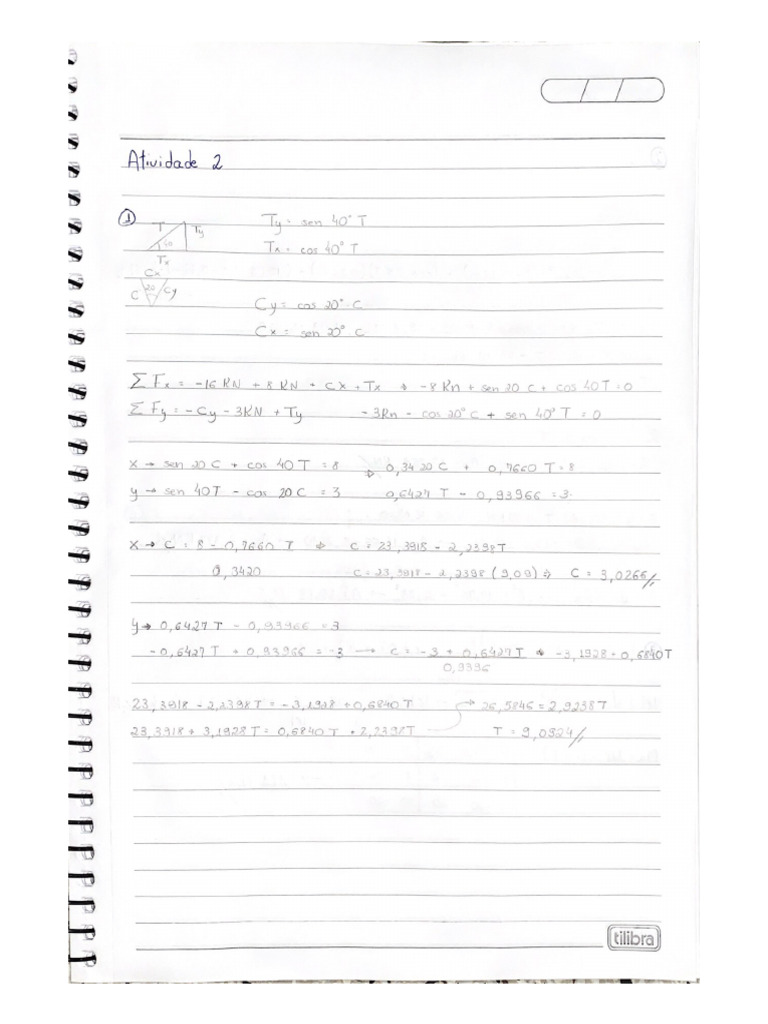 Atividade 2
①
T Ty Ty = sen 40° T
40 Tx = cos 40° T
Tx
Cx
C 20 Cy Cy = cos 20° C
Cx = sen 20° C
Σ Fx = -16 KN + 8 KN + CX + Tx ⇒ -8 Kn + sen 20 C + cos 40 T = 0
Σ Fy = -Cy - 3KN + Ty -3Kn - cos 20° C + sen 40° T = 0
x → sen 20 C + cos 40 T = 8 ⇒ 0,3420 C + 0,7660 T = 8
y → sen 40T - cos 20 C = 3 0,6427 T - 0,93966 = 3
x → C = 8 - 0,7660 T ⇒ C = 23,3918 - 2,2398T
0,3420 C = 23,3918 - 2,2398 (9,09) ⇒ C = 3,0266//
y → 0,6427 T - 0,93966 = 3
-0,6427 T + 0,93966 = -3 → C = -3 + 0,6427 T ⇒ -3,1928 + 0,6840T
0,9396
23,3918 - 2,2398T = -3,1928 + 0,6840T → 26,5846 = 2,9238T
23,3918 + 3,1928T = 0,6840 T + 2,2398T T = 9,0924//
tilibra